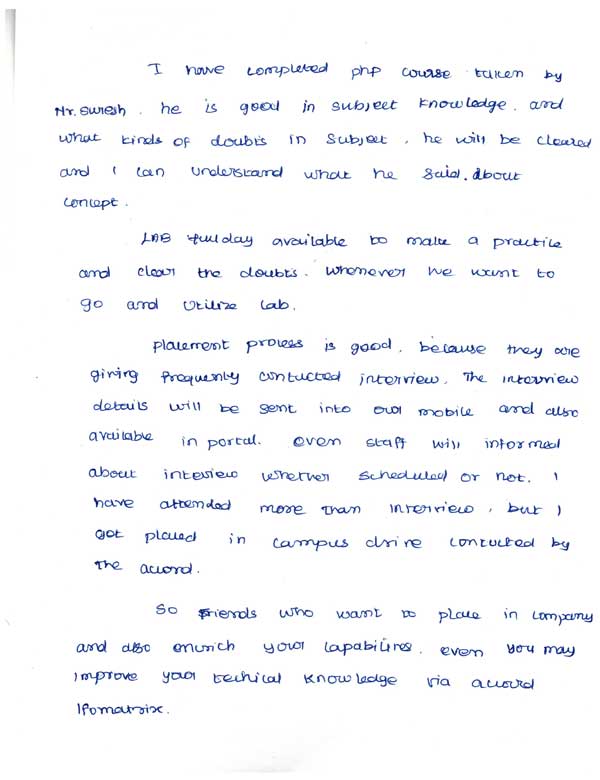 I have completed php course taken by
Mr. Suresh. he is good in subject knowledge. and
what kinds of doubts in subject, he will be cleared
and I can understand what he said. about
concept.
LAB fullday available to make a practice
and clear the doubts. Whenever we want to
go and utilize lab.
placement process is good. because they are
giving frequenly contucted interview. The interview
details will be sent into our mobile and also
available in portal. even staff will informed
about inteview whether scheduled or not. I
have attended more than interview, but I
got placed in campus drive contucted by
the accord.
So friends who want to place in company
and also enurich your capabilires. even you may
improve your techical knowledge via accord
Ifomatrix.